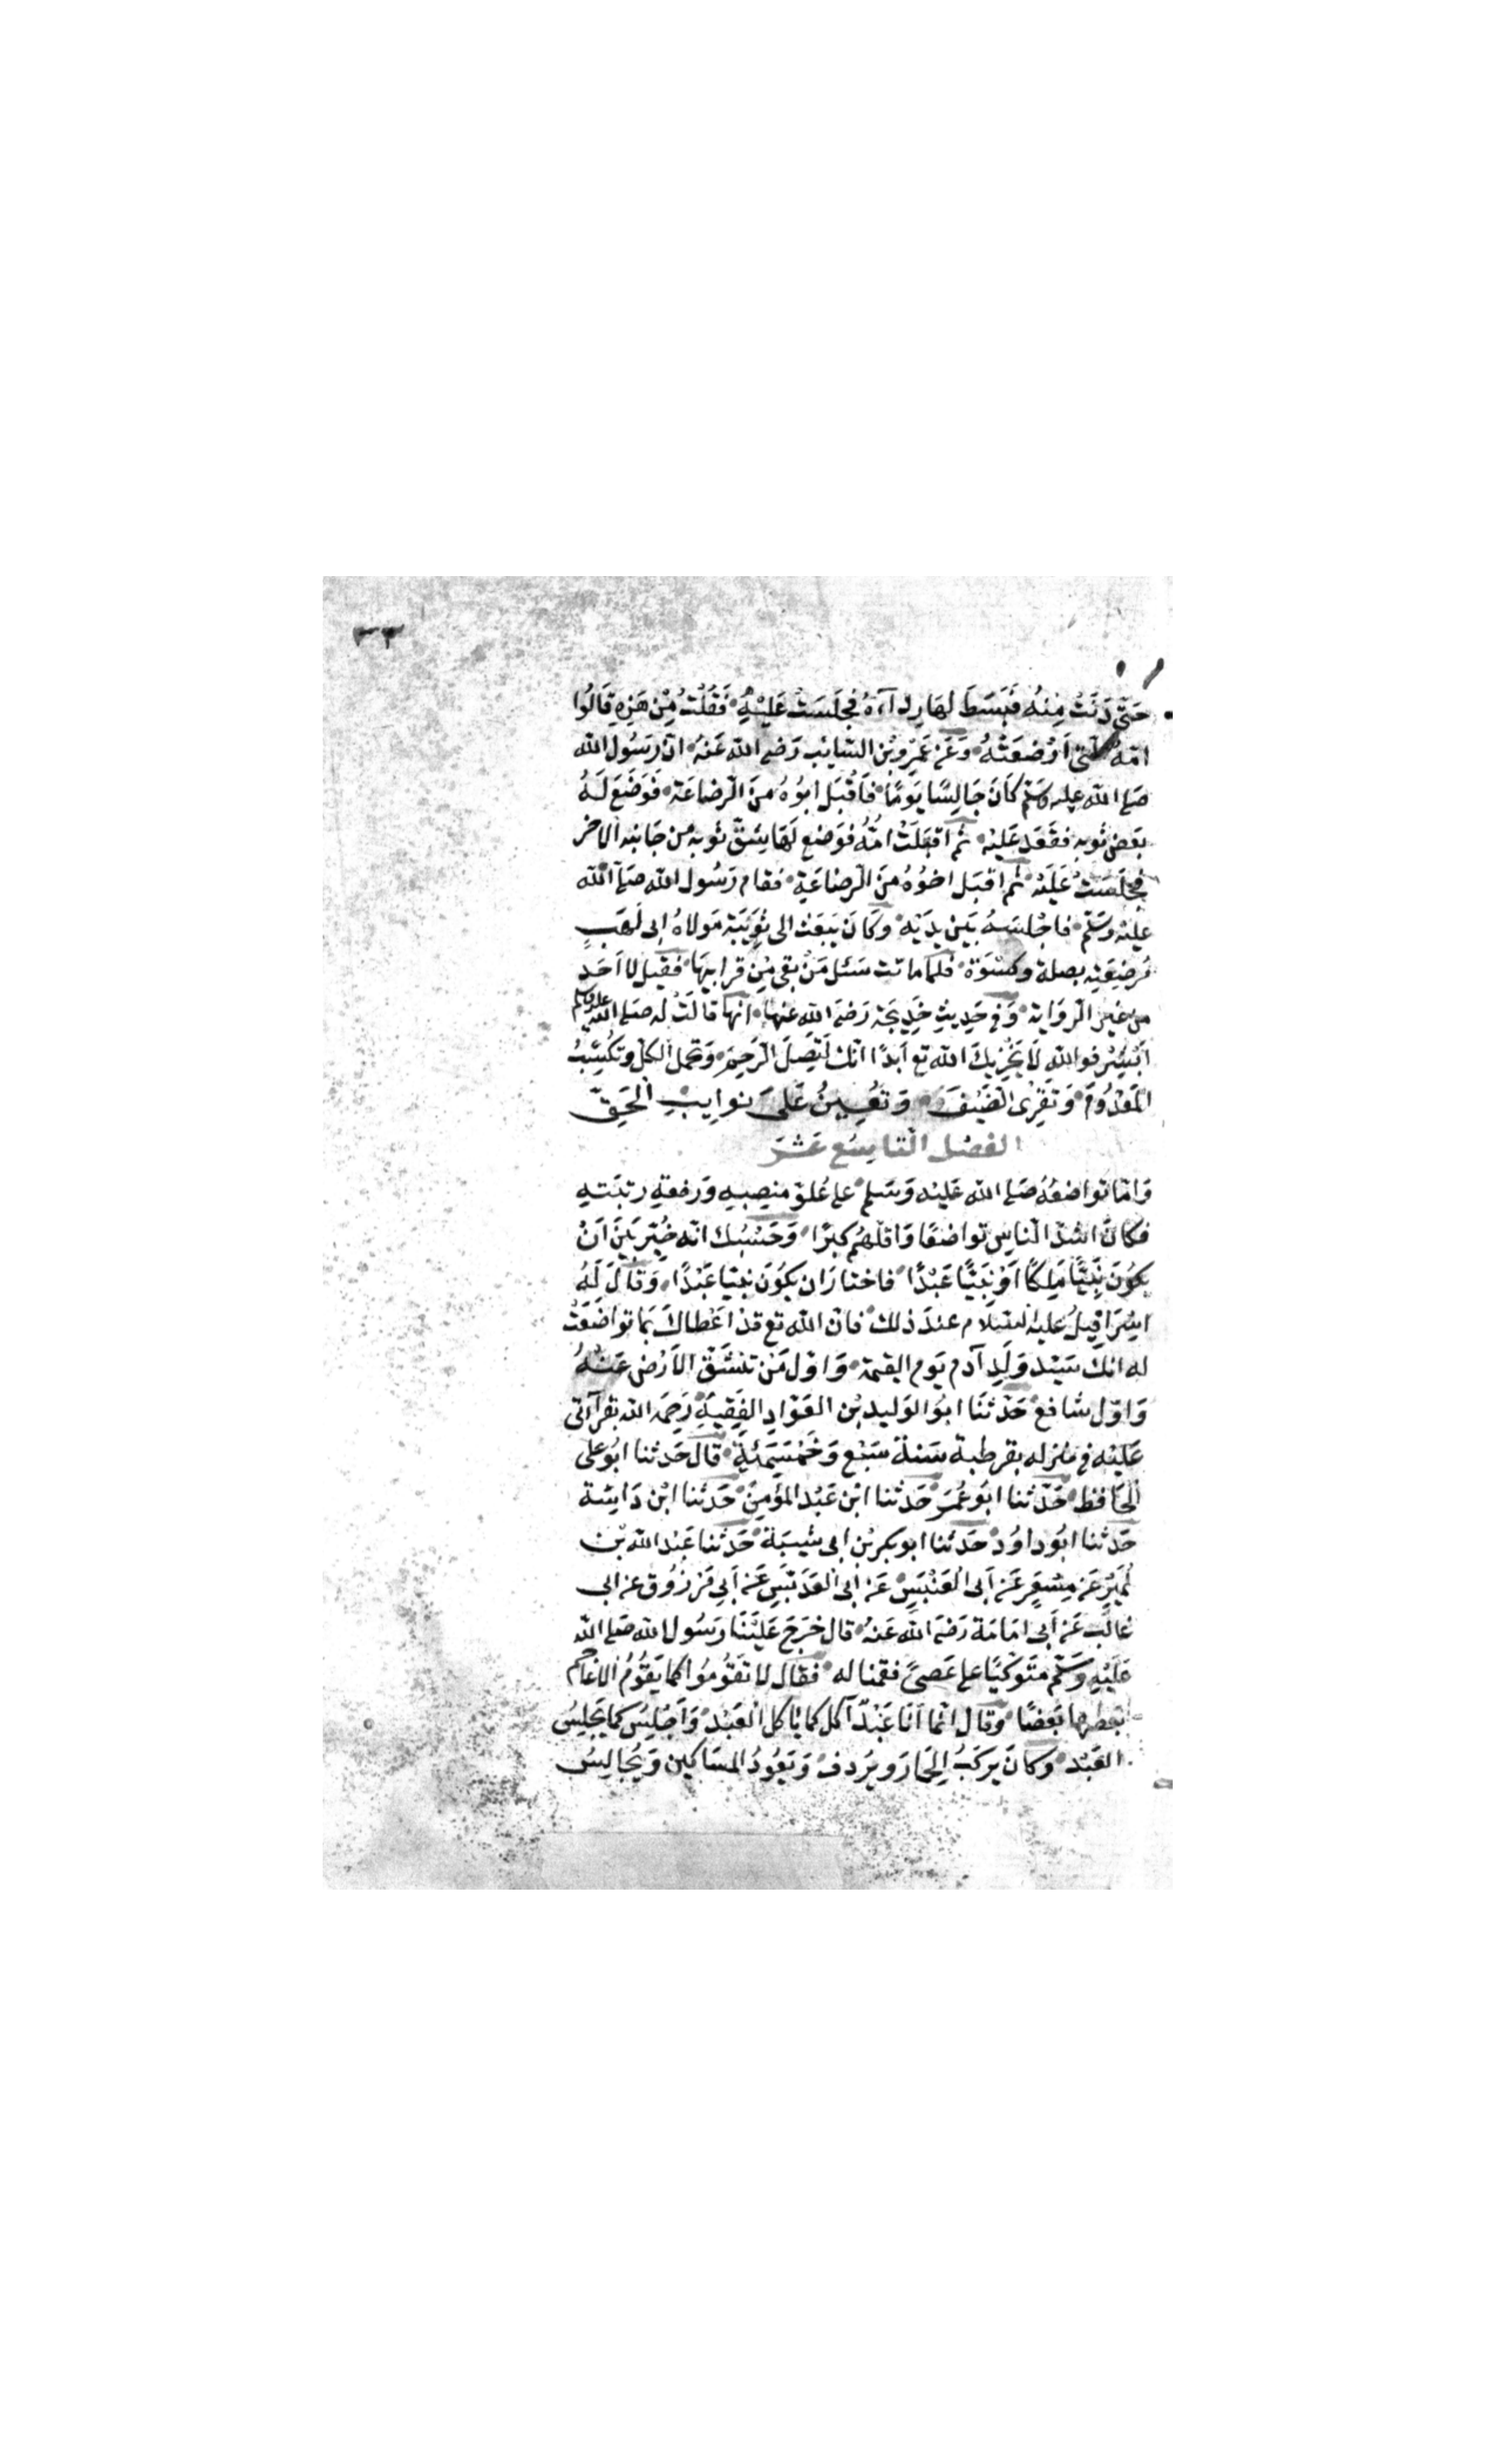 ٣٣
حَتّى دَنَتْ مِنْهُ فَبَسَطَ لَهَا رِدآءَهُ فَجَلَسَتْ عَلَيْهِ فَقُلْتُ مِنْ هَذِهِ قَالُوا
امّهُ التى اَرْضعَتْهُ وَعَنْ عَمْرِو بْنِ السّائِب رَضى الله عَنهُ انّ رَسُول الله
صَلى الله عليه وسَلّم كَانَ جَالِسًا يَومًا فَاَقْبَل ابُوُهُ منَ الرّضاعَة فَوَضَعَ لَهُ
بَعَض ثوبِه فَقَعَد عَليْه ثم اقبَلَتْ امُّهُ فوَضع لَهَا شِقّ ثوبه من جَانبه الاخر
فجَلَسَتْ عَلَيْه ثم اقبَل اخوُهُ منَ الرضاعَةِ فقام رَسُول الله صَلى الله
عليْه وسَلّم فاجْلسَهُ بَين يدَيْه وكَانَ يَبعَث الى ثوَيْبَة مَولاة ابى لَهَبٍ
مُرضِعَتِه بصلة وكسْوَة فلما ماتت سَئل مَنْ بقى مِن قرابتِهَا فقيل لا اَحَد
من غير الرّوَاية وَفى حَدِيثِ خَدِيجَة رَضى الله عنها انها قالَتْ له صَلى الله عليه وسلم
ابْشِرْ فوالله لَا يُخْزِيكَ الله تع اَبدًا انّك لَتَصِلَ الرّحِمَ وَتحمل الكل وَتكسِبُ
المَعْدُومَ وَتَقرِى الضّيْفَ وَتعُينُ عَلىَ نوايِبِ الحَقّ
الفصْل التاسِع عَشَر
وَامّا تواضعُهُ صَلى الله عَليْه وَسَلم على عُلوّ منصِبِهِ وَرفعَةِ رتبَتهِ
فكانَ اشدّ الناس تواضعًا وَاقلهُم كبرًا وَحَسْبُك انّه خُيّر بَينَ اَنْ
يكوُنَ نَبِيًّا مَلِكًا اَوْ نَبيًّا عَبْدًا فاختارَ ان يكوُنَ نبيّا عَبْدًا وَقالَ لَهُ
اسْرَافِيلُ عليْه السّلام عندَ ذلك فانّ الله تع قدْ اعْطاكَ بمَا تواضَعْتَ
له انّك سَيّد وَلَدِ آدم يَوم القيمة وَاوّل مَنْ تنشَقّ الاَرْض عَنْهُ
وَاوّل شافع حَدّثنَا ابُو الوَليد بْن العَوّادِ الفَقيهُ رَحمَه الله بقرآتى
عَليْه فى منزله بقرطبة سَنةَ سَبْع وَخَمْسَمِئةٍ قالَ حَدثنا ابُو على
الحَافظ حَدّثنا ابُو عُمَرَ حَدثنا ابْن عَبْد المؤمِن حَدثنا ابْن دَاسَة
حَدثنا ابُو داوُد حَدثنا ابو بكر بْن ابى شيبَة حَدثنا عَبْد الله بْن
نُميْرٍ عَن مِسْعَرٍ عَن اَبى العَنْبَسِ عَن اَبى العَدَبّسِ عَن اَبى مَرْزُوق عن ابى
غالب عَن اَبى امَامَة رَضى الله عَنهُ قال خرَجَ عَليْنَا رَسُول الله صَلى الله
عَلَيْه وسَلّم متوَكيًا على عَصىً فقمنا له فقال لا تقوُمُوا كما يَقُومُ الاعَاجم
بعضها بَعضًا وَقال انما اَنَا عَبْدٌ آكل كما يأكل العَبْد وَاَجْلِسُ كما يَجلِسُ
العَبْد وَكانَ يَركَبُ الحِمَارَ وَيردف وَيَعُودُ المسَاكين وَيُجالِسُ